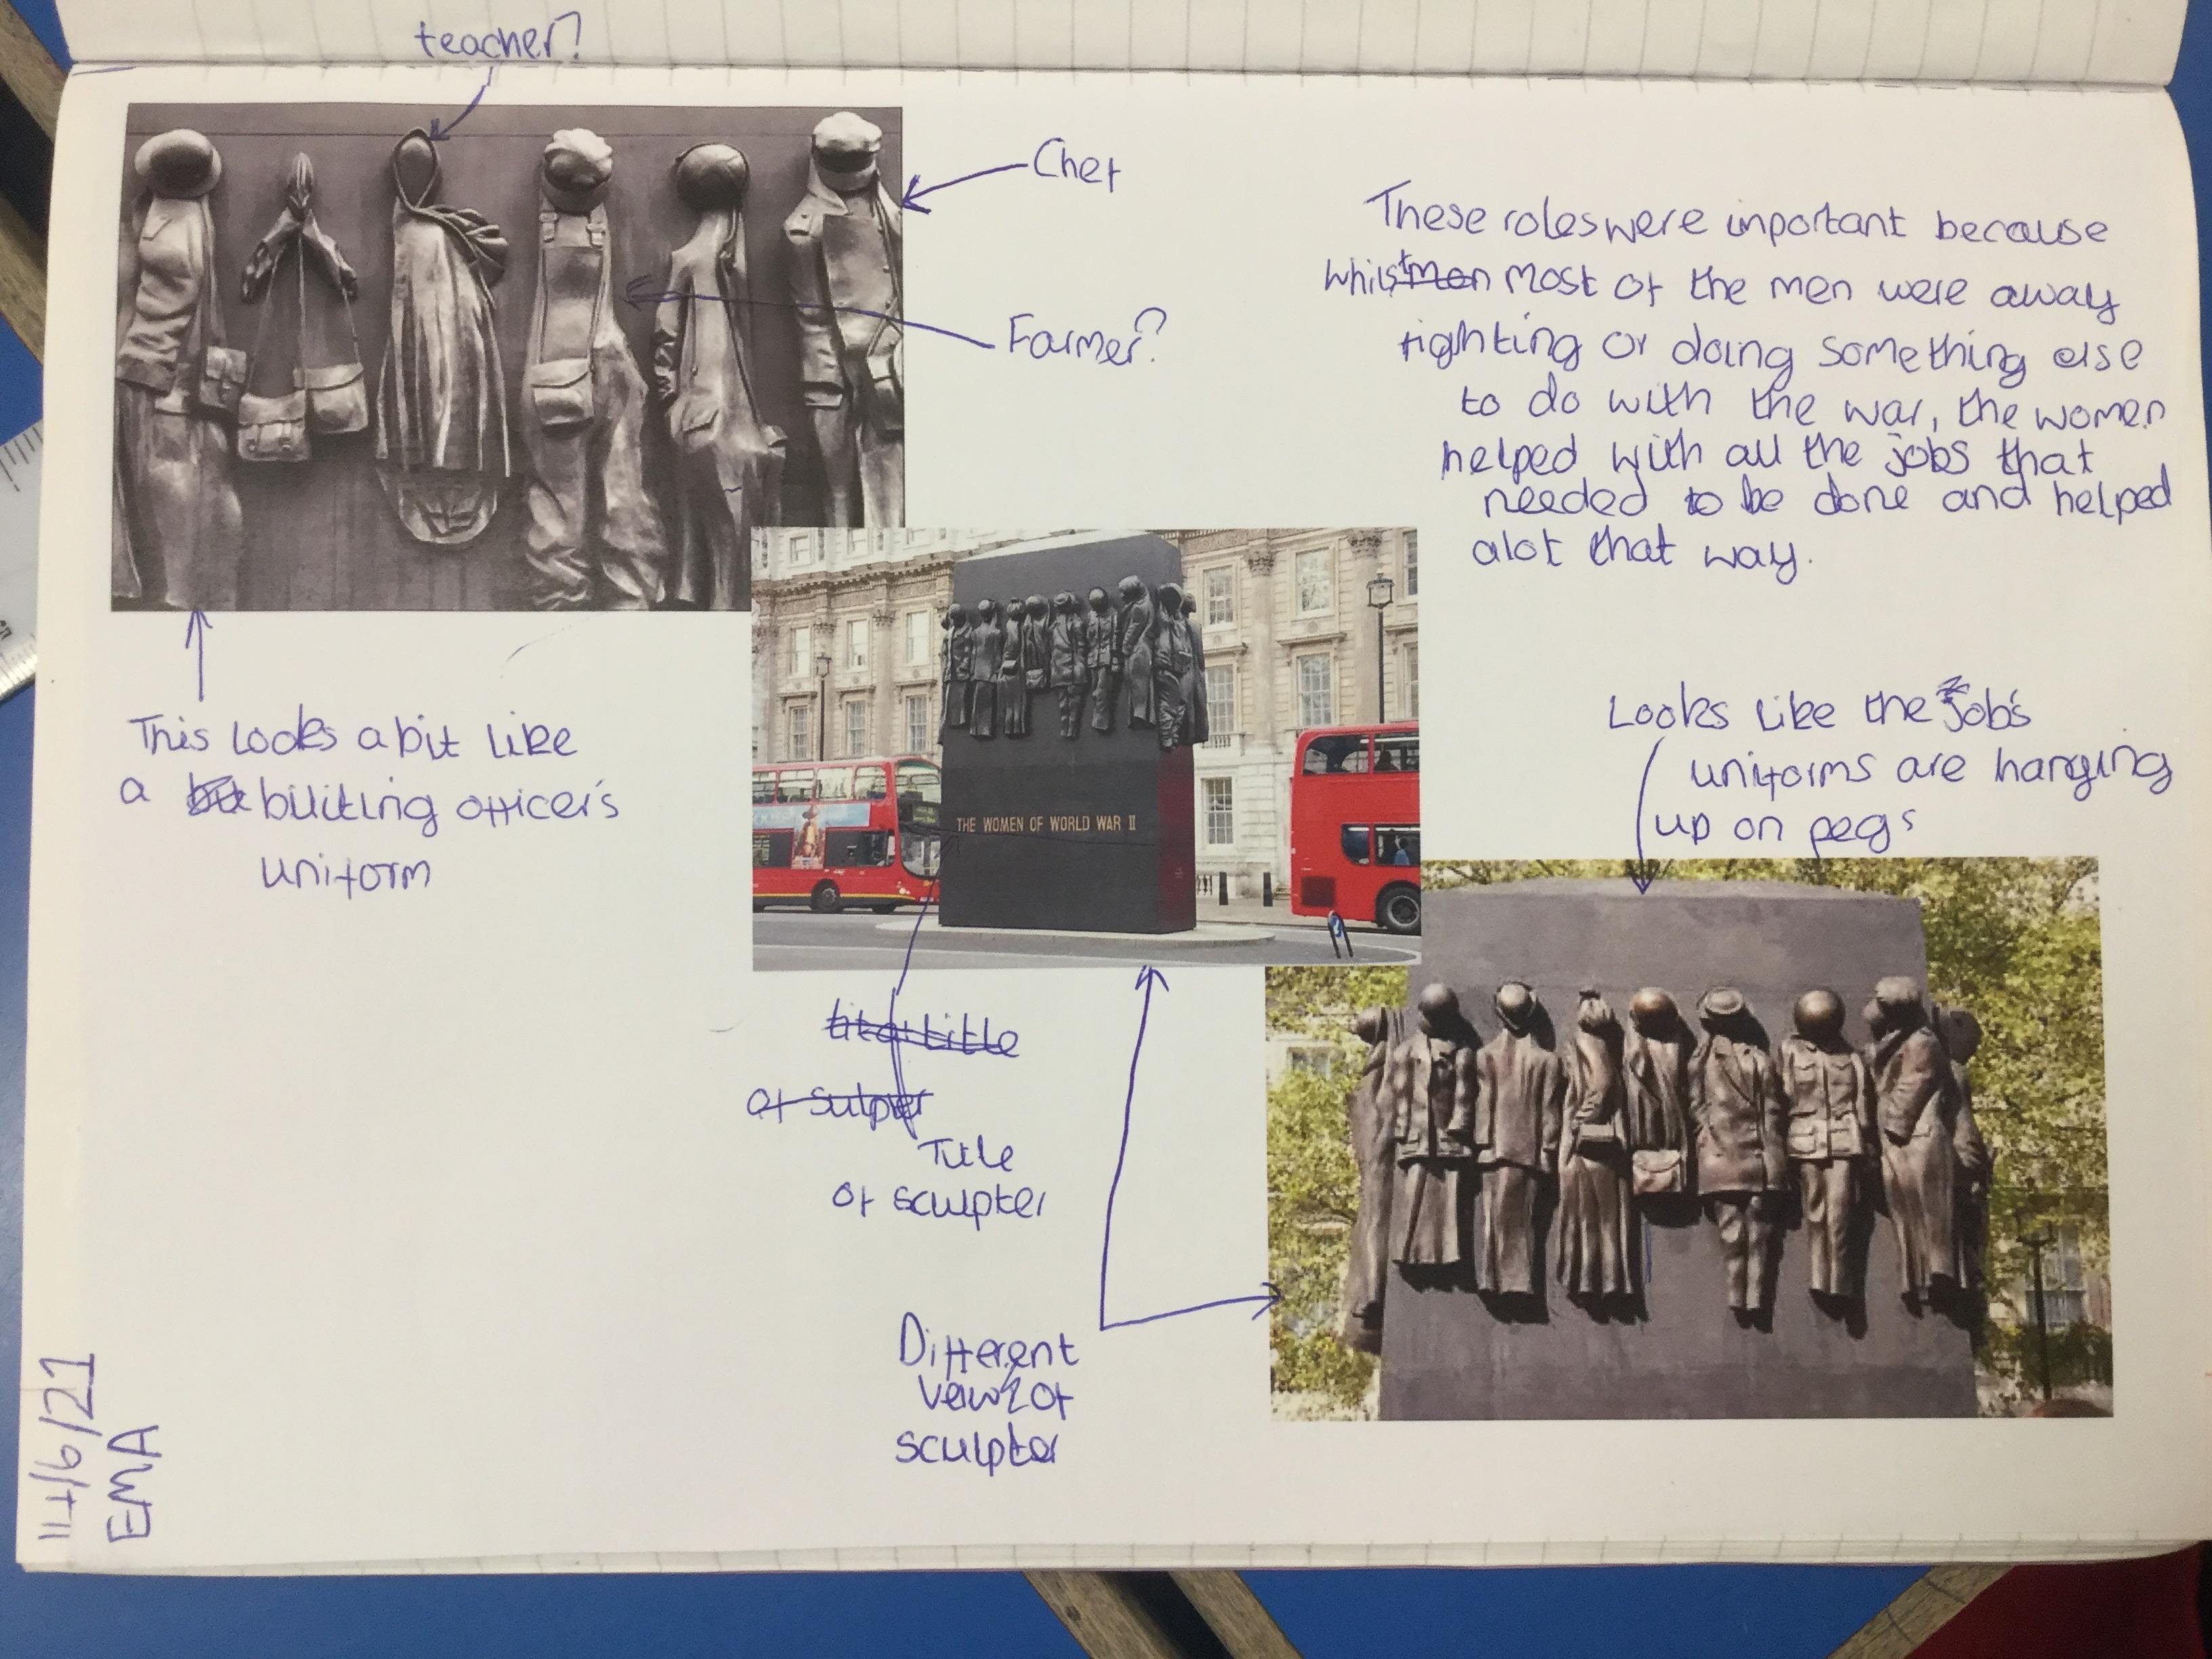 teacher?
Chef
Farmer?
These roles were inportant because
whilst men most of the men were away
fighting or doing something else
to do with the war, the women
helped with all the jobs that
needed to be done and helped
alot that way.
This looks a bit like
a builiting officer's
uniform
THE WOMEN OF WORLD WAR II
Looks like the Job's
uniforms are hanging
up on pegs
title
of sulpter
Title
of sculpter
Different
veiw of
sculpter
14/6/21
EMA